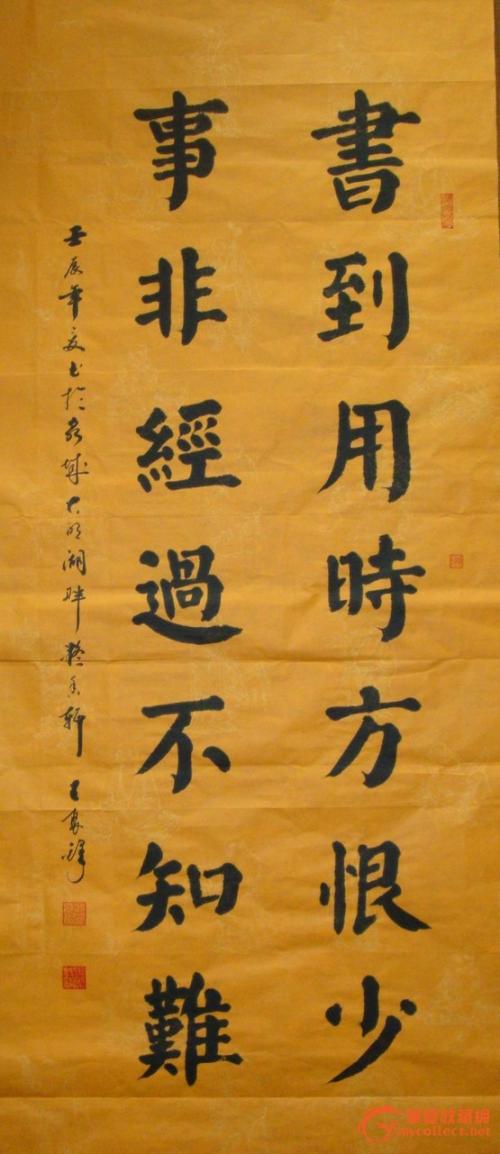 書到用時方恨少
事非經過不知難
壬辰年夏書於泉城大明湖畔
mycollect.net